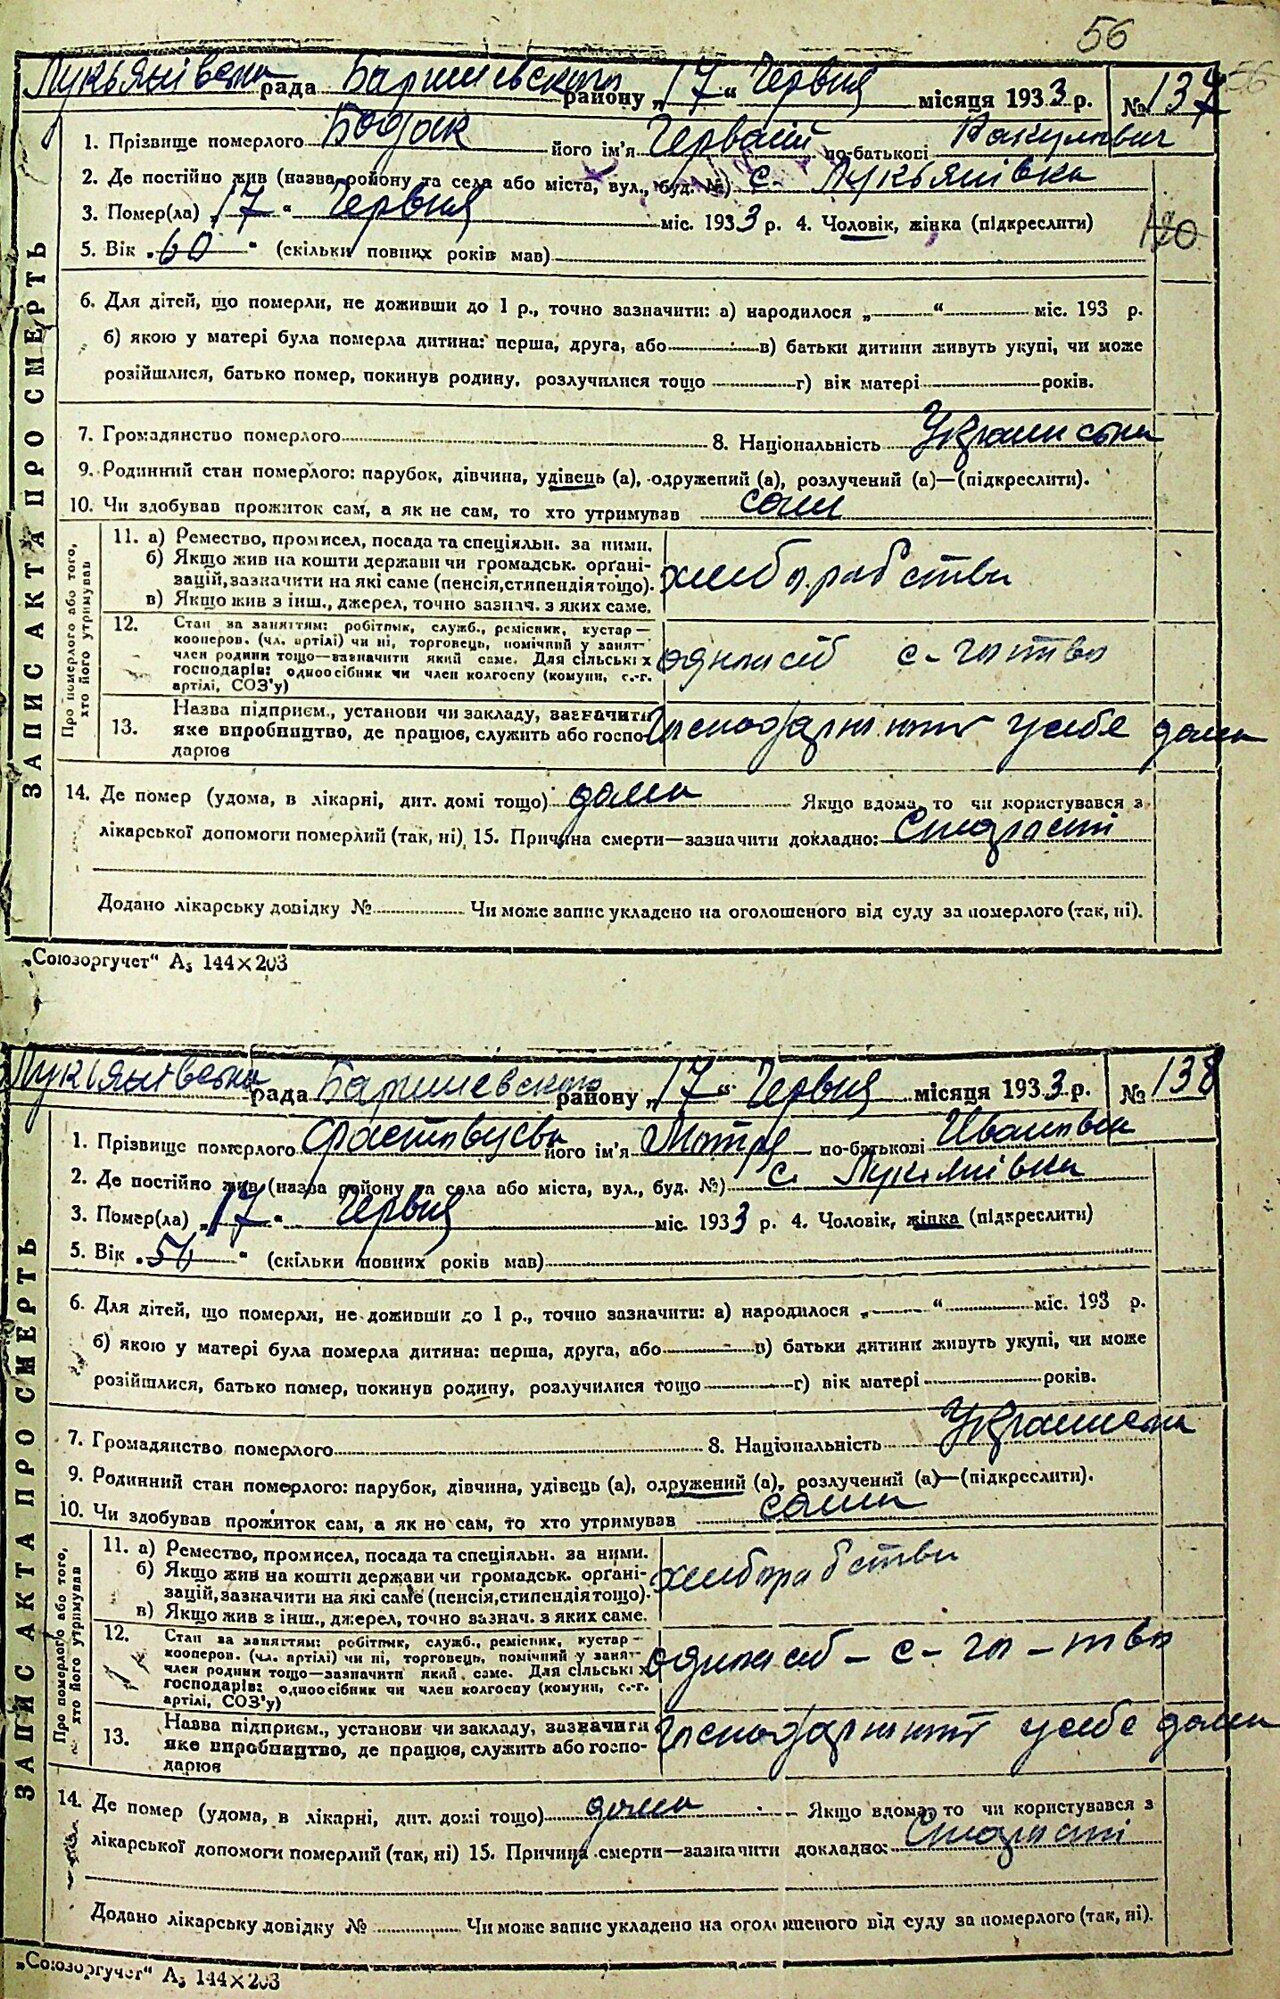 56
56
Лукьянівська рада Баришевського району „17“ Червня місяця 1933 р. № 137
1. Прізвище померлого Бодак його ім'я по-батькові Вакулович
2. Де постійно жив (назва району та села або міста, вул., буд. №) с. Лукьянівка
3. Помер(ла) „17“ Червня міс. 1933 р. 4. Чоловік, жінка (підкреслити)
5. Вік „60“ (скільки повних років мав)
6. Для дітей, що померли, не доживши до 1 р., точно зазначити: а) народилося „ “ міс. 193 р.
б) якою у матері була померла дитина: перша, друга, або в) батьки дитини живуть укупі, чи може
розійшлися, батько помер, покинув родину, розлучилися тощо г) вік матері років.
7. Громадянство померлого 8. Національність
9. Родинний стан померлого: парубок, дівчина, удівець (а), одружений (а), розлучений (а)—(підкреслити).
10. Чи здобував прожиток сам, а як не сам, то хто утримував сам
ЗАПИС АКТА ПРО СМЕРТЬ
Про померлого або того, хто його утримував
11. а) Ремество, промисел, посада та спеціяльн. за ними.
б) Якщо жив на кошти держави чи громадськ. орґані-
зацій, зазначити на які саме (пенсія, стипендія тощо).
в) Якщо жив з інш., джерел, точно зазнач. з яких саме.
12. Стан за заняттям: робітник, служб., ремісник, кустар—
кооперов. (чл. артілі) чи ні, торговець, помічний у занят-
член родини тощо—зазначити який саме. Для сільських
господарів: одноосібник чи член колгоспу (комуни, с.-г.
артілі, СОЗ'у)
одноосіб с-г-тва
13. Назва підприєм., установи чи закладу, зазначити
яке виробництво, де працює, служить або госпо-
дарює
у себе дома
14. Де помер (удома, в лікарні, дит. домі тощо) дома Якщо вдома, то чи користувався з
лікарської допомоги померлий (так, ні) 15. Причина смерти—зазначити докладно: Старости
Додано лікарську довідку № Чи може запис укладено на оголошеного від суду за померлого (так, ні).
„Союзоргучет“ А₅ 144×203
Лукьянівська рада Баришевського району „17“ Червня місяця 1933 р. № 138
1. Прізвище померлого його ім'я Мотря по-батькові Івановна
2. Де постійно жив (назва району та села або міста, вул., буд. №) с. Лукянівка
3. Помер(ла) „17“ Червня міс. 1933 р. 4. Чоловік, жінка (підкреслити)
5. Вік „56“ (скільки повних років мав)
6. Для дітей, що померли, не доживши до 1 р., точно зазначити: а) народилося „ “ міс. 193 р.
б) якою у матері була померла дитина: перша, друга, або в) батьки дитини живуть укупі, чи може
розійшлися, батько помер, покинув родину, розлучилися тощо г) вік матері років.
7. Громадянство померлого 8. Національність
9. Родинний стан померлого: парубок, дівчина, удівець (а), одружений (а), розлучений (а)—(підкреслити).
10. Чи здобував прожиток сам, а як не сам, то хто утримував сама
ЗАПИС АКТА ПРО СМЕРТЬ
Про померлого або того, хто його утримував
11. а) Ремество, промисел, посада та спеціяльн. за ними.
б) Якщо жив на кошти держави чи громадськ. орґані-
зацій, зазначити на які саме (пенсія, стипендія тощо).
в) Якщо жив з інш., джерел, точно зазнач. з яких саме.
12. Стан за заняттям: робітник, служб., ремісник, кустар—
кооперов. (чл. артілі) чи ні, торговець, помічний у занят-
член родини тощо—зазначити який саме. Для сільських
господарів: одноосібник чи член колгоспу (комуни, с.-г.
артілі, СОЗ'у)
одноосіб - с-г-тва
13. Назва підприєм., установи чи закладу, зазначити
яке виробництво, де працює, служить або госпо-
дарює
у себе дома
14. Де помер (удома, в лікарні, дит. домі тощо) дома Якщо вдома, то чи користувався з
лікарської допомоги померлий (так, ні) 15. Причина смерти—зазначити докладно: Старости
Додано лікарську довідку № Чи може запис укладено на оголошеного від суду за померлого (так, ні).
„Союзоргучет“ А₅ 144×203